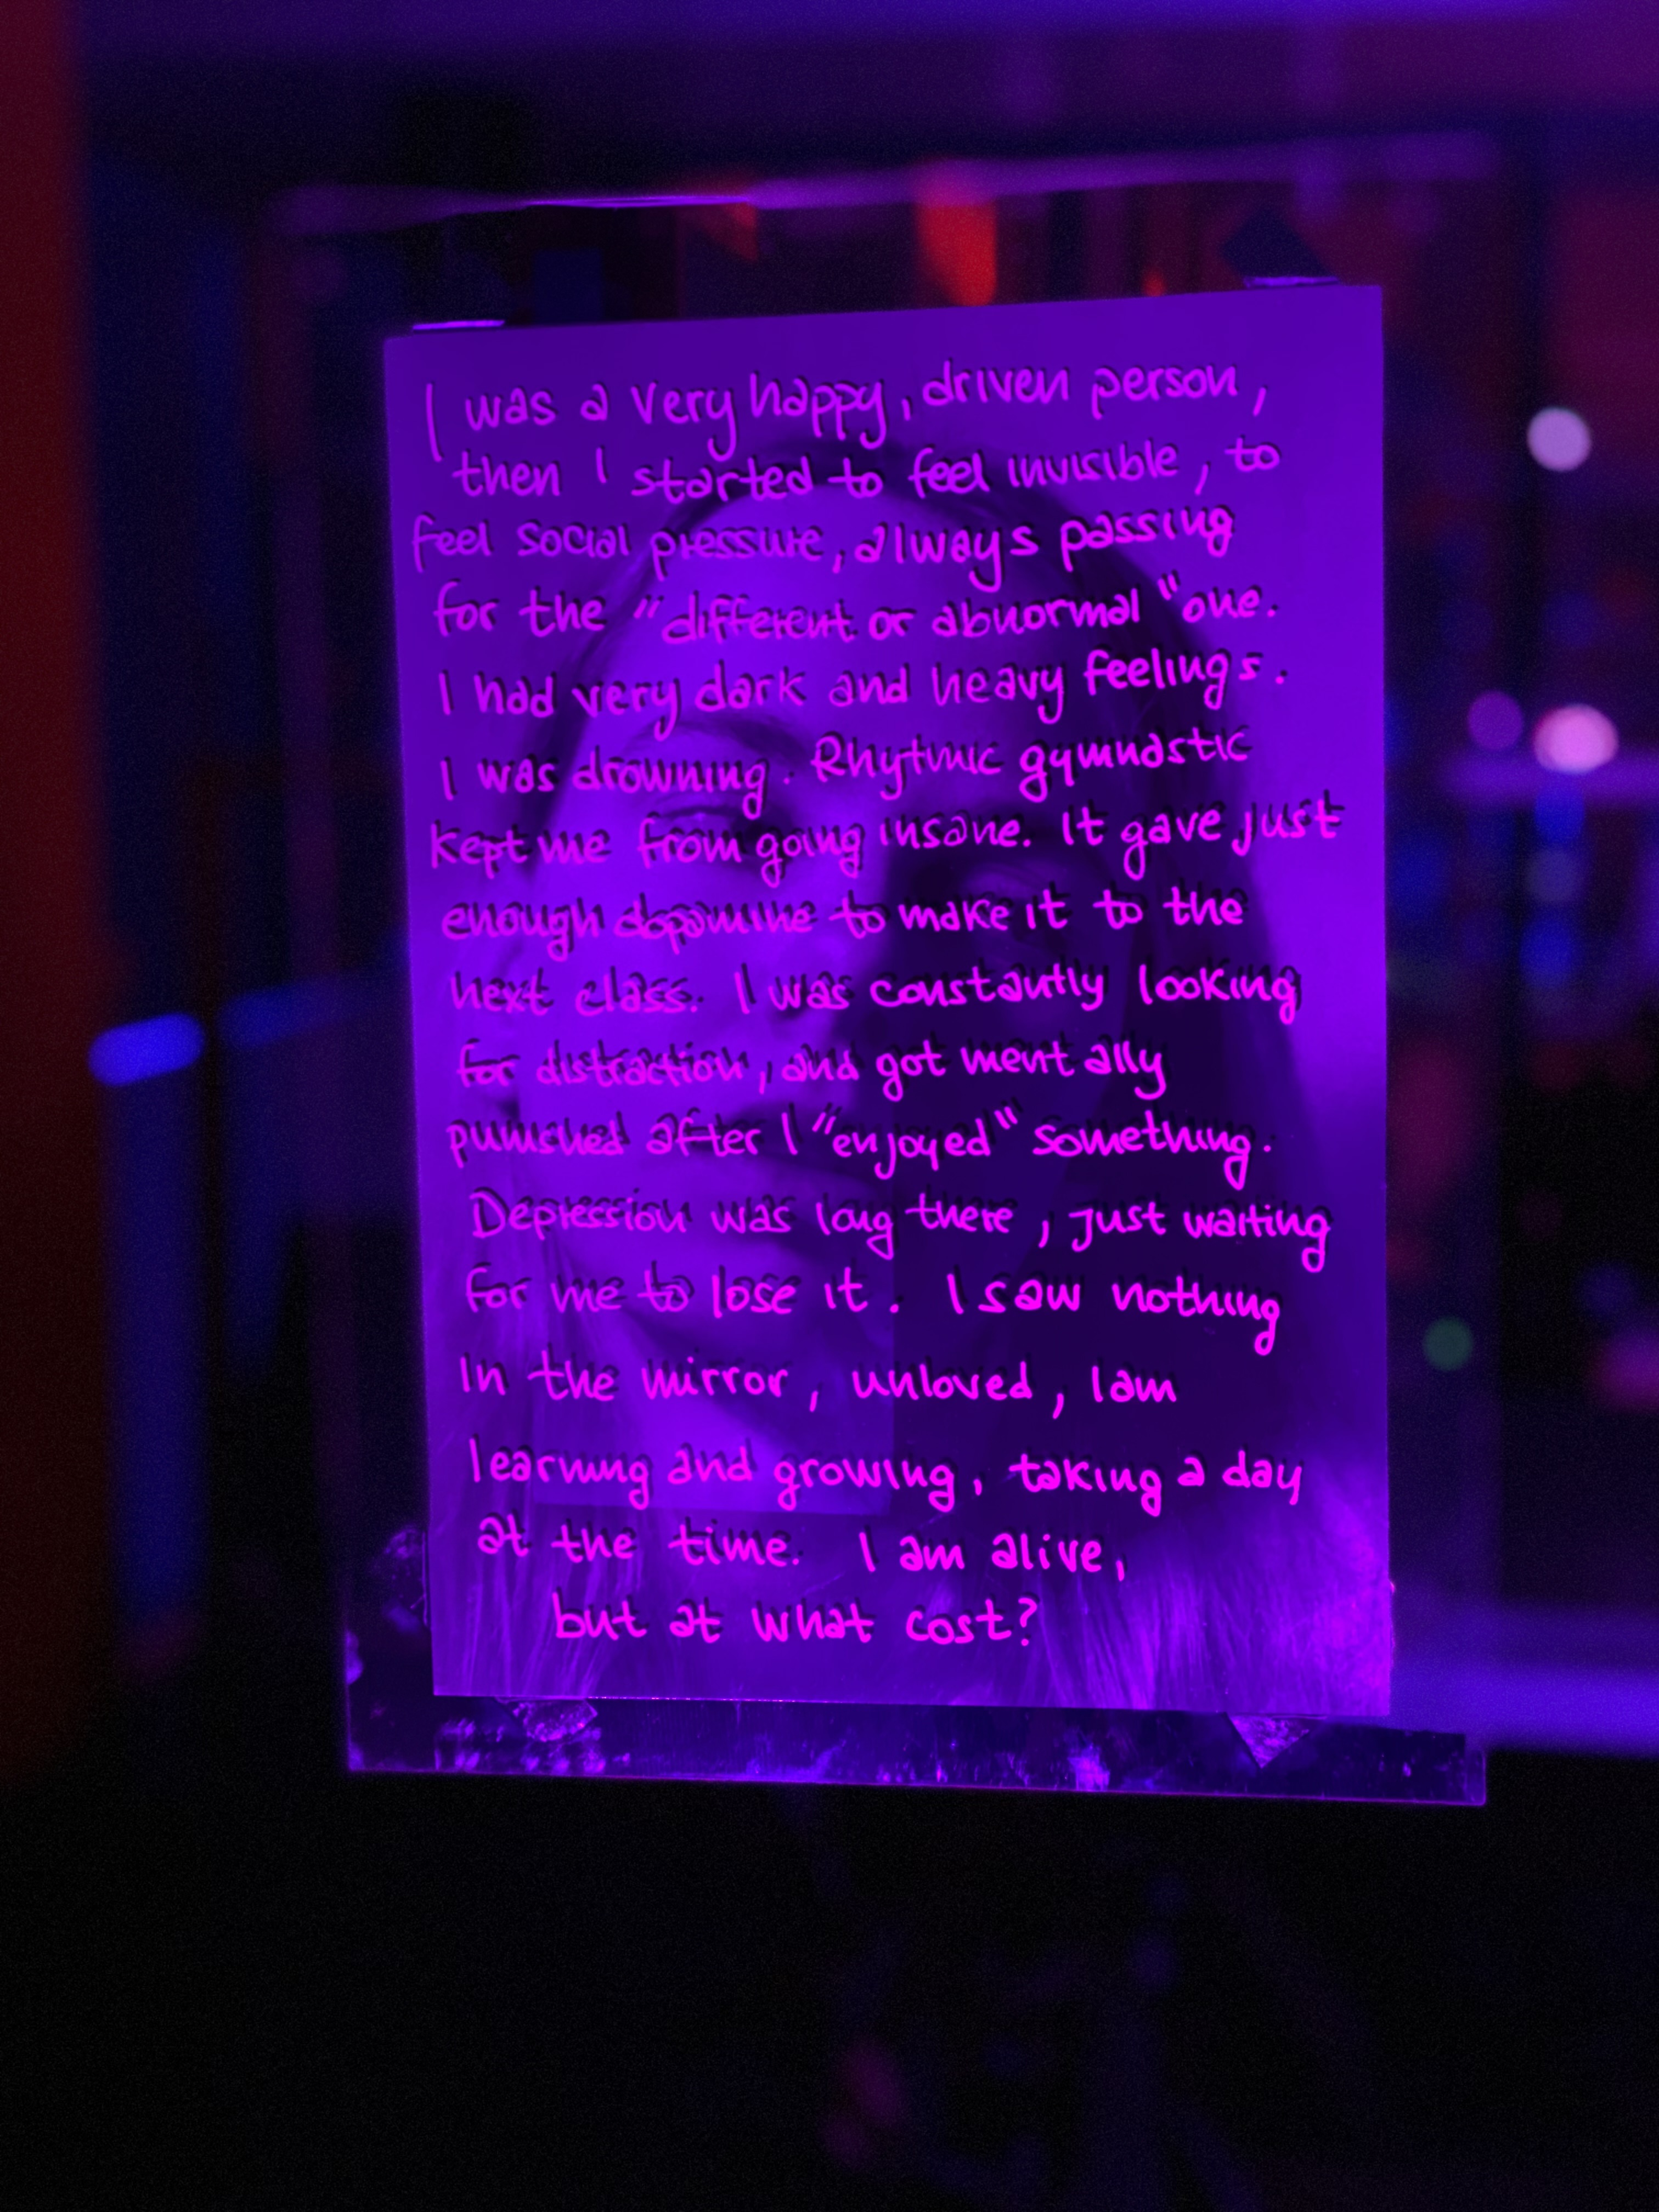 I was a very happy, driven person,
then I started to feel invisible, to
feel social pressure, always passing
for the "different or abnormal" one.
I had very dark and heavy feelings.
I was drowning. Rhytmic gymnastic
kept me from going insane. It gave just
enough dopamine to make it to the
next class. I was constantly looking
for distraction, and got mentally
punished after I "enjoyed" something.
Depression was long there, just waiting
for me to lose it. I saw nothing
in the mirror, unloved, I am
learning and growing, taking a day
at the time. I am alive,
but at what cost?